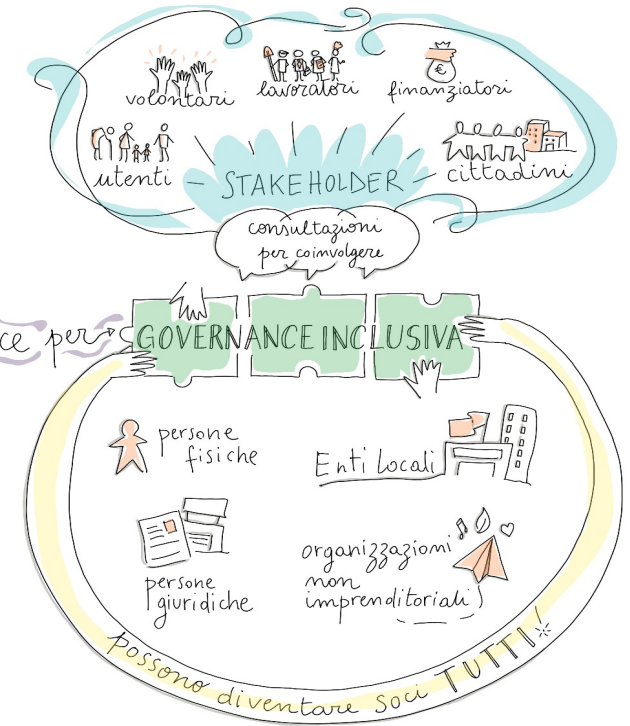 volontari
lavoratori
finanziatori
€
utenti
STAKEHOLDER
cittadini
consultazioni
per coinvolgere
per
GOVERNANCE INCLUSIVA
persone
fisiche
Enti Locali
persone
giuridiche
organizzazioni
non
imprenditoriali
possono diventare soci TUTTI!